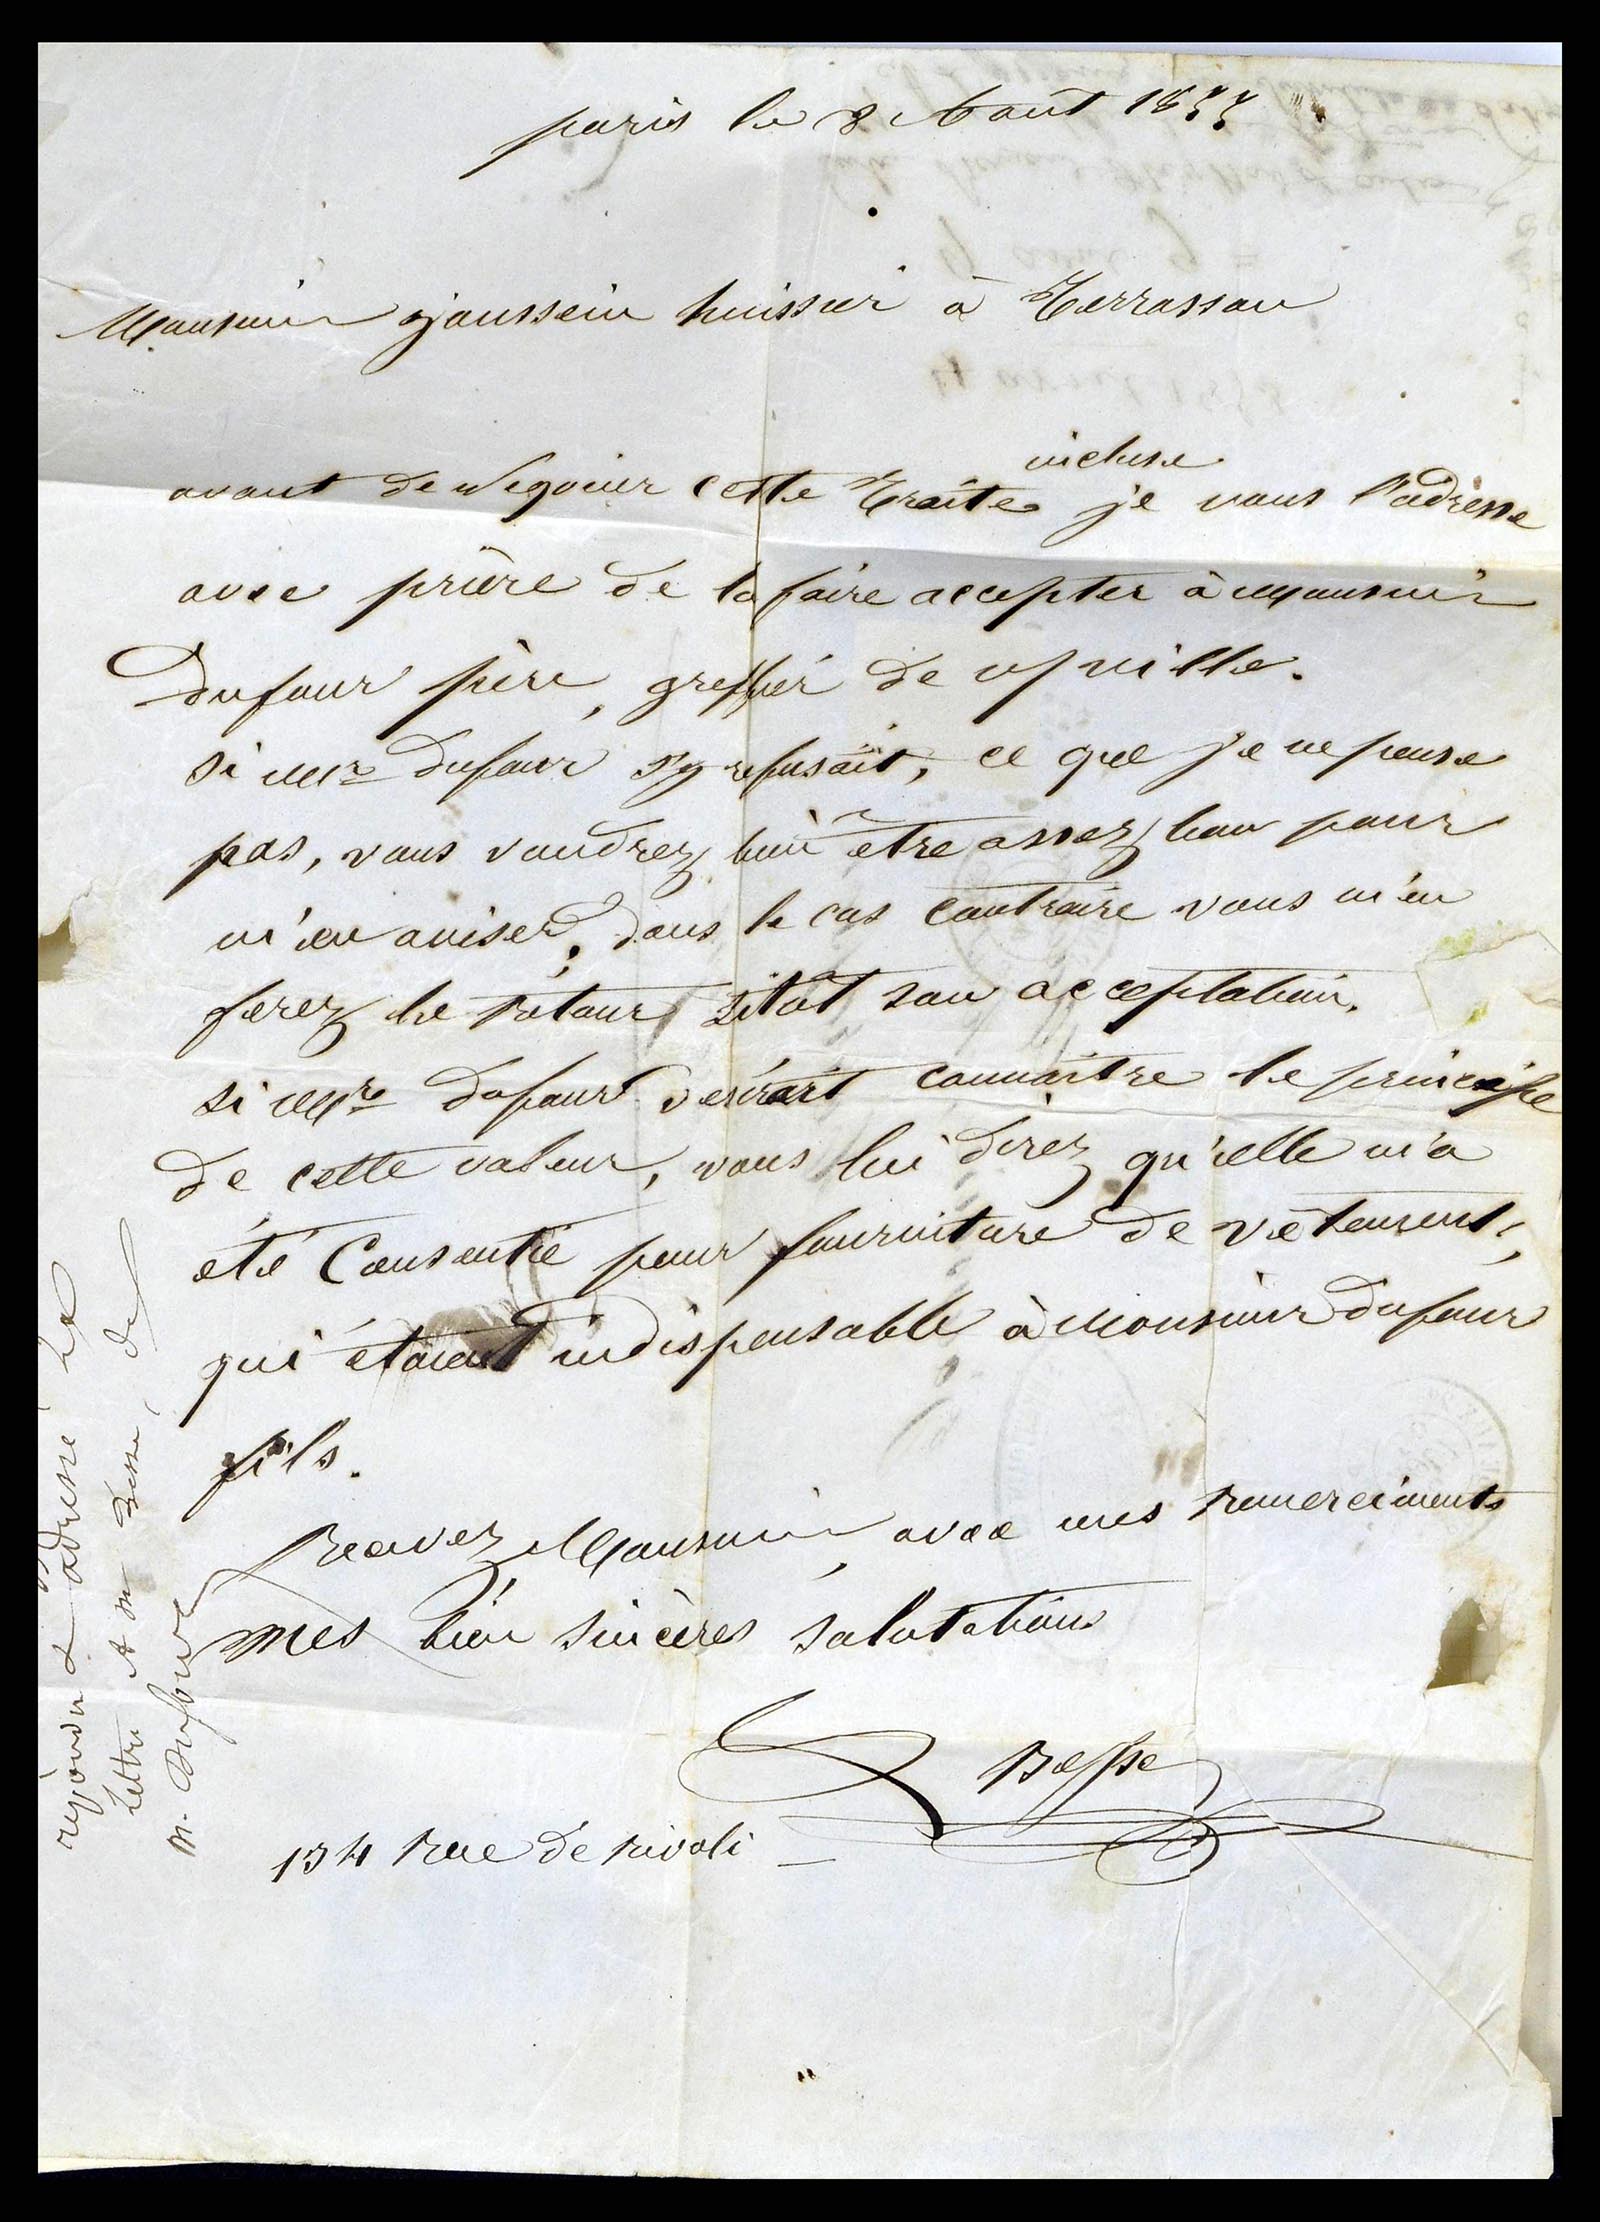 paris le 8 Août 1855
Monsieur Jaussein huissier à Terrasson
incluse
avant de Négocier cette Traite je vous l'adresse
avec prière de la faire accepter à Monsieur
Dufour père, greffier de v/ ville.
si Mr Dufour s'y refusait, ce que je ne pense
pas, vous voudrez bien être assez bon pour
m'en aviser, dans le cas contraire vous m'en
ferez le retour sitôt son acceptation.
si Mr Dufour désirait connaître le principe
de cette valeur, vous lui direz qu'elle m'a
été Consentie pour fourniture de vêtements,
qui étaient indispensable à Monsieur Dufour
fils.
Recevez Monsieur, avec mes remerciments
mes bien sincères salutations
Besse
134 Rue de rivoli
répondu & adressé la
lettre A M Besse, de
M. Dufour